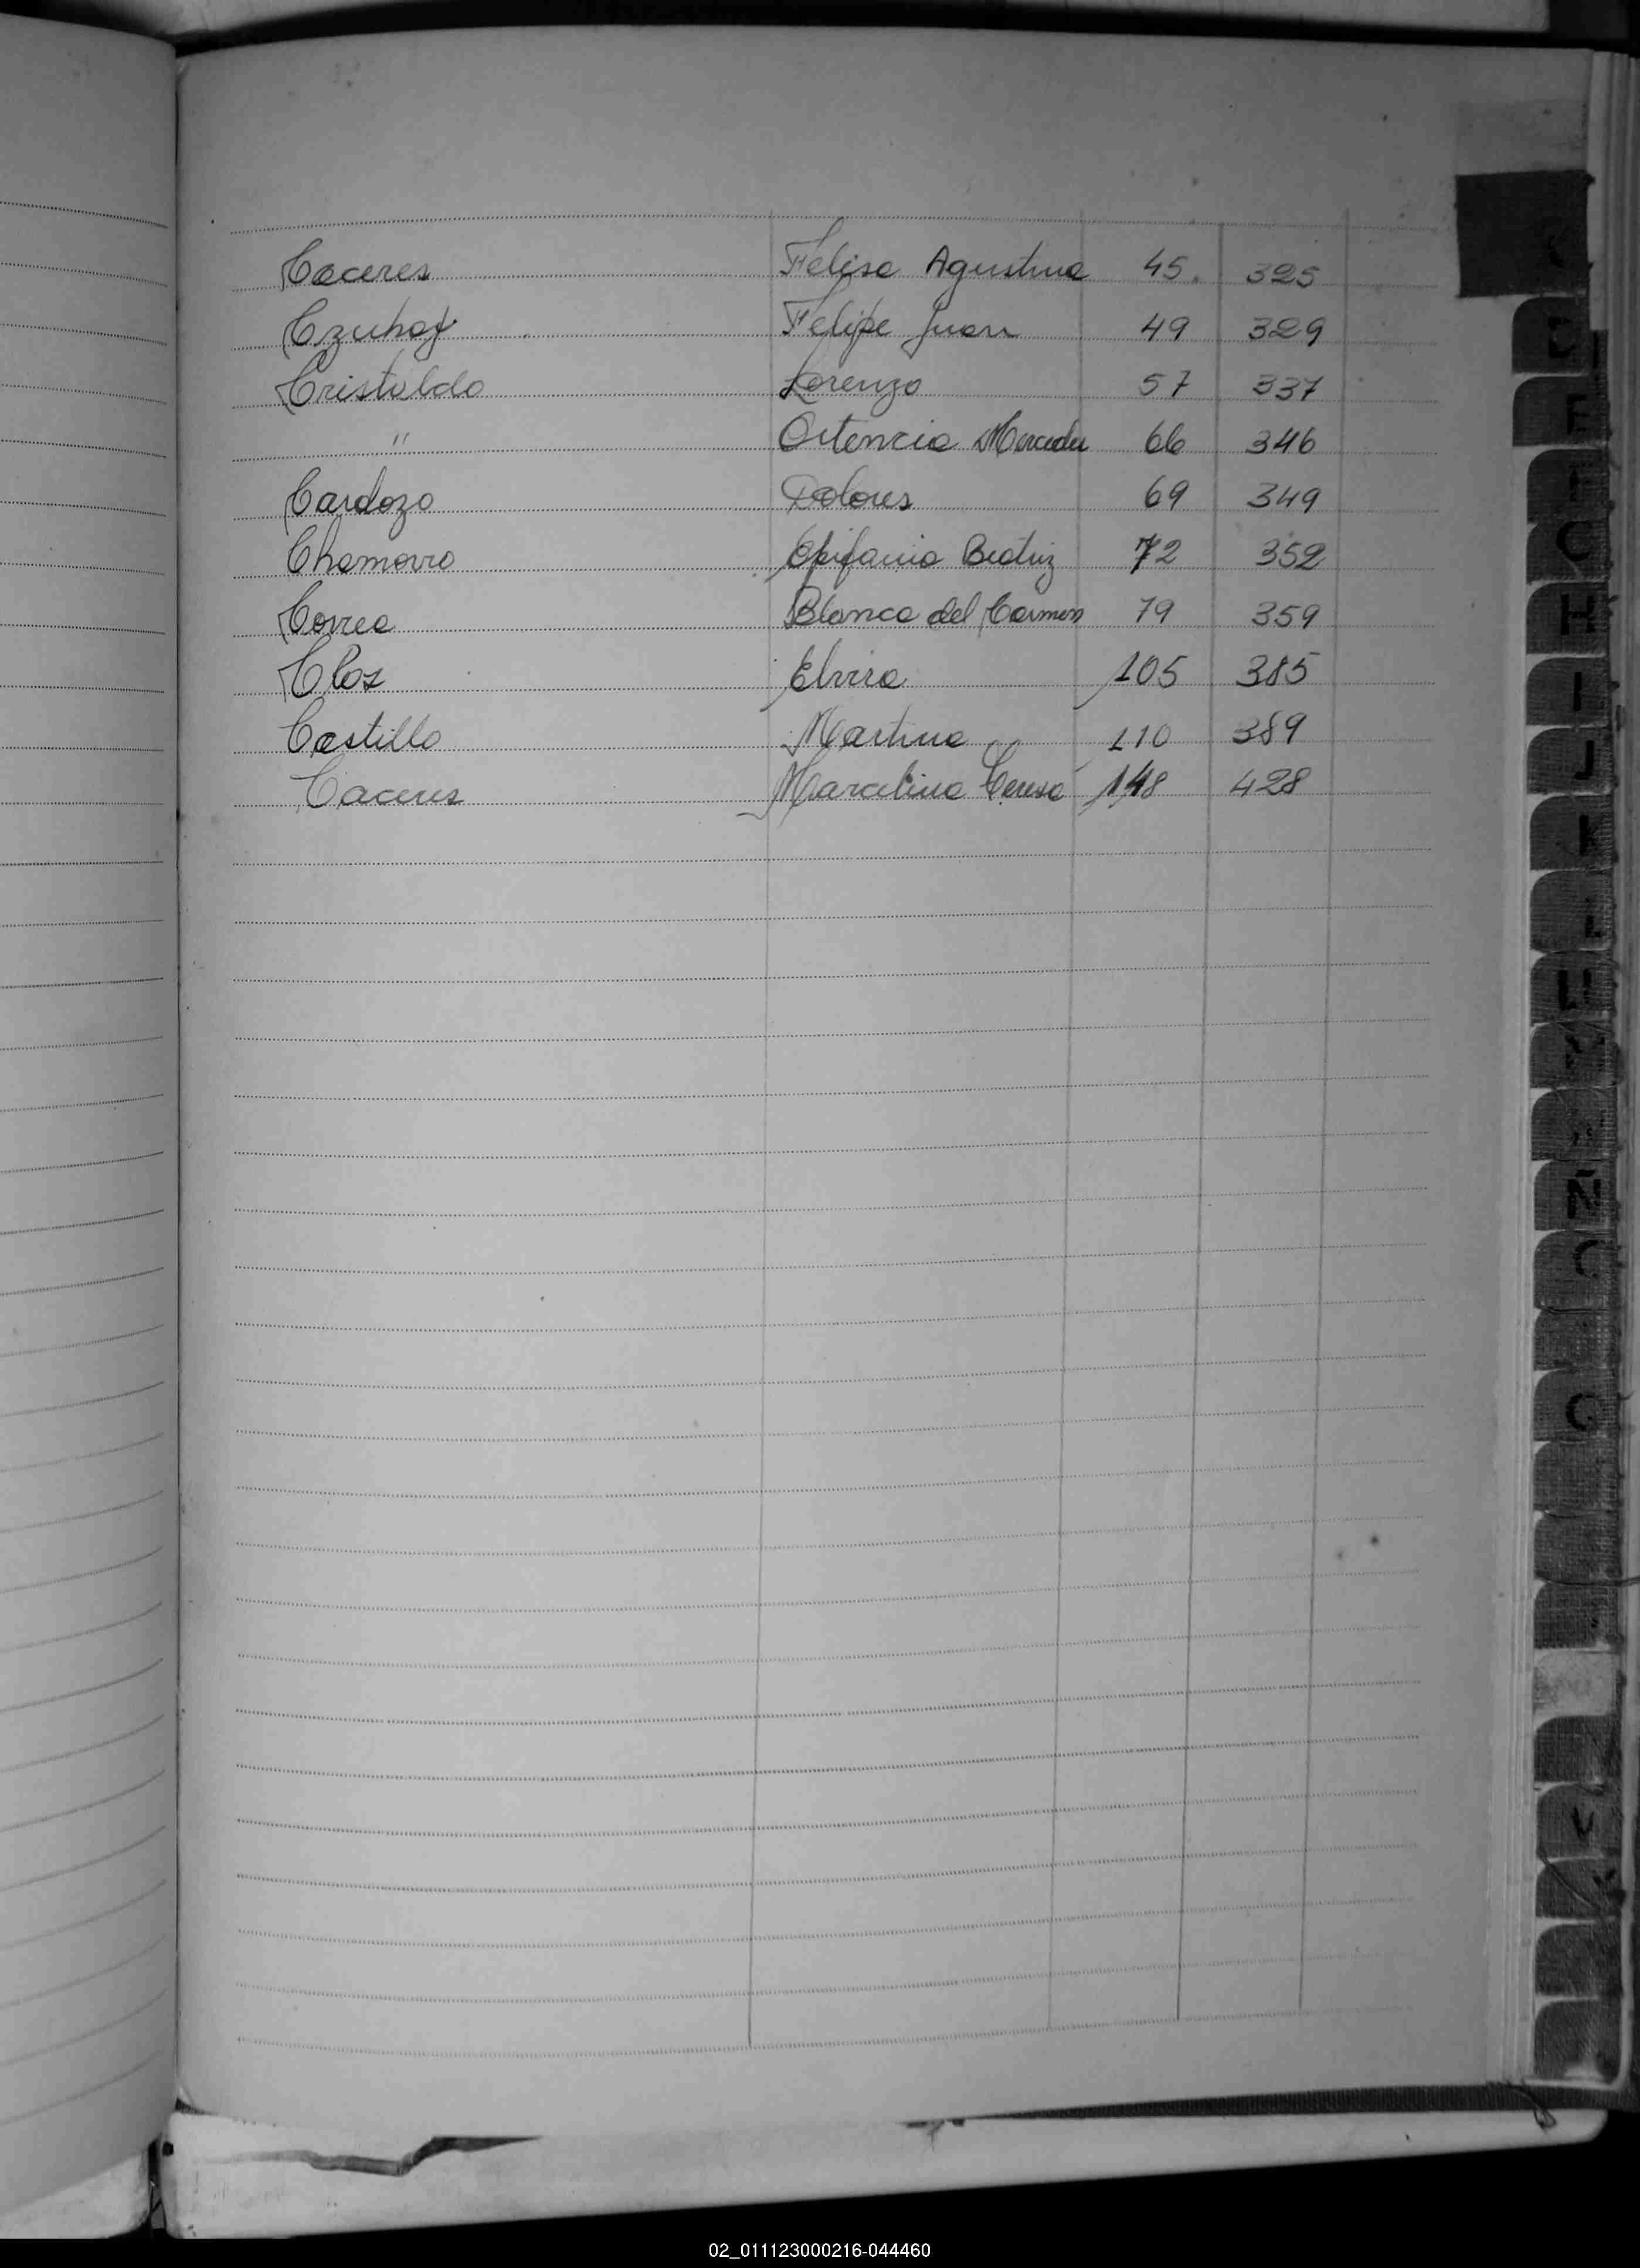 Caceres Felisa Agustina 45 325
Czuhaj Felipe Juan 49 329
Cristaldo Lorenzo 57 337
" Ortencia Mercedes 66 346
Cardozo Dolores 69 349
Chamorro Epifania Beatriz 72 352
Correa Blanca del Carmen 79 359
Cloz Elvira 105 385
Castillo Martina 110 389
Caceres Marcelina Teresa 148 428
02_011123000216-044460